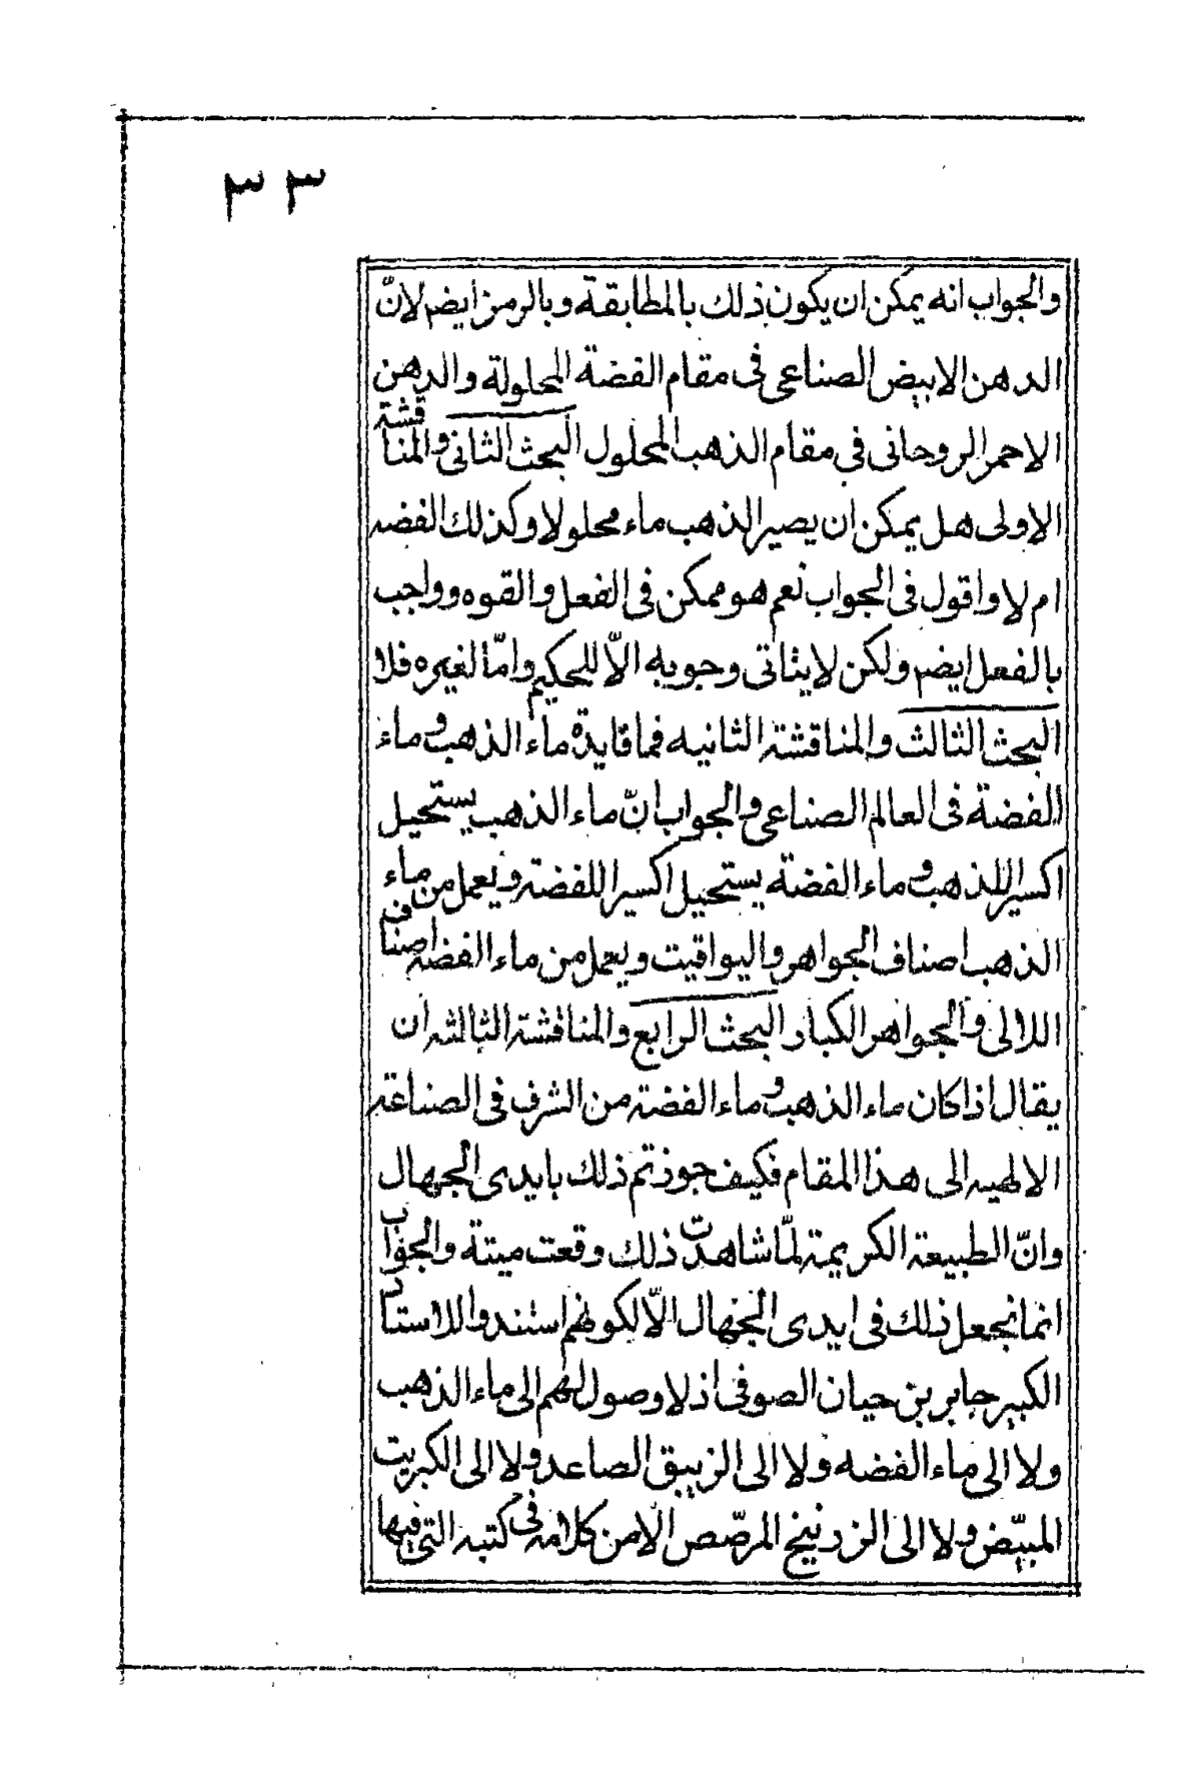 ٣٣
والجواب انه يمكن ان يكون ذلك بالمطابقة وبالرمز ايضم لانّ
الدهن الابيض الصناعى فى مقام الفضة المحلولة والدهن
الاحمر الروحانى في مقام الذهب المحلول البحث الثانى والمناقشة
الاولى هل يمكن ان يصير الذهب ماء محلولا وكذلك الفضه
ام لا واقول فى الجواب نعم هو ممكن فى الفعل والقوه وواجب
بالفعل ايضم ولكن لا يتاتى وجوبه الاّ للحكيم وامّا لغيره فلا
البحث الثالث والمناقشة الثانيه فما فايدة ماء الذهب وماء
الفضة فى العالم الصناعى والجواب انّ ماء الذهب يستحيل
اكسير اللذهب وماء الفضة يستحيل اكسير اللفضة ويعمل من ماء
الذهب اصناف الجواهر واليواقيت ويعمل من ماء الفضة اصناف
اللالى والجواهر الكبار البحث الرابع والمناقشة الثالثه ان
يقال اذا كان ماء الذهب وماء الفضة من الشرف فى الصناعة
الالهيه الى هذا المقام فكيف جوذتم ذلك بايدى الجهال
وانّ الطبيعة الكريمة لمّا شاهدت ذلك وقعت ميتة والجواب
انما نجعل ذلك فى ايدى الجهال الاّ لكونهم استندوا للاستاد
الكبير جابر بن حيان الصوفى اذ لا وصول لهم الى ماء الذهب
ولا الى ماء الفضه ولا الى الزيبق الصاعد ولا الى الكبريت
المبيّض ولا الى الزرنيخ المرصّص الا من كلامه فى كتبه التى فيها